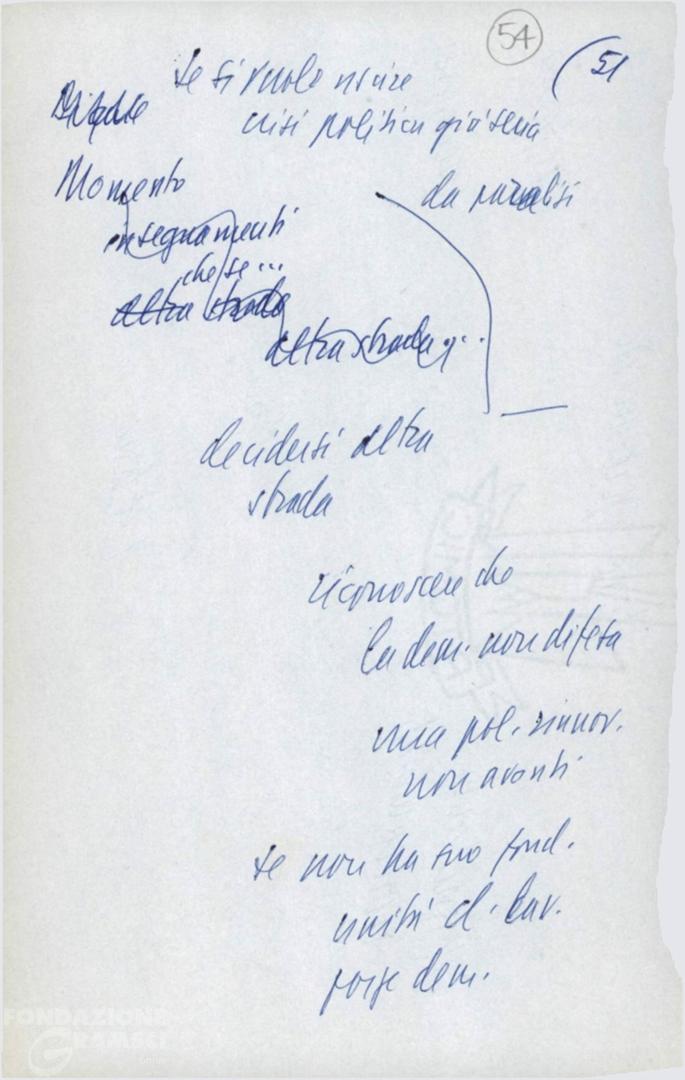 54
51
se si vuole uscire
crisi politica già seria
Momento
da paralisi
insegnamenti
che se ...
altra strada
altra strada, ...
decidersi altra
strada
riconoscere che
la dem. non difesa
una pol. rinnov.
non avanti
se non ha suo fond.
unità cl. lav.
forze dem.
FONDAZIONE
GRAMSCI